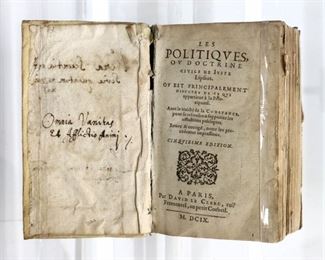 Omnia Vanitas
et Afflictio Animj
LES
POLITIQVES,
OV DOCTRINE
CIVILE DE IVSTE
Lipsius.
OV EST PRINCIPALEMENT
DISCOVRV DE CE QVI
appartient à la Prin-
cipauté.
Auec le traicté de la CONSTANCE,
pour se resoudre à supporter les
afflictions publiques.
Reueu & corrigé, outre les pre-
cedentes impressions.
CINQVIESME EDITION.
A PARIS,
Par DAVID LE CLERC, ruë
Frementel, au petit Corbeil.
M. DCIX.